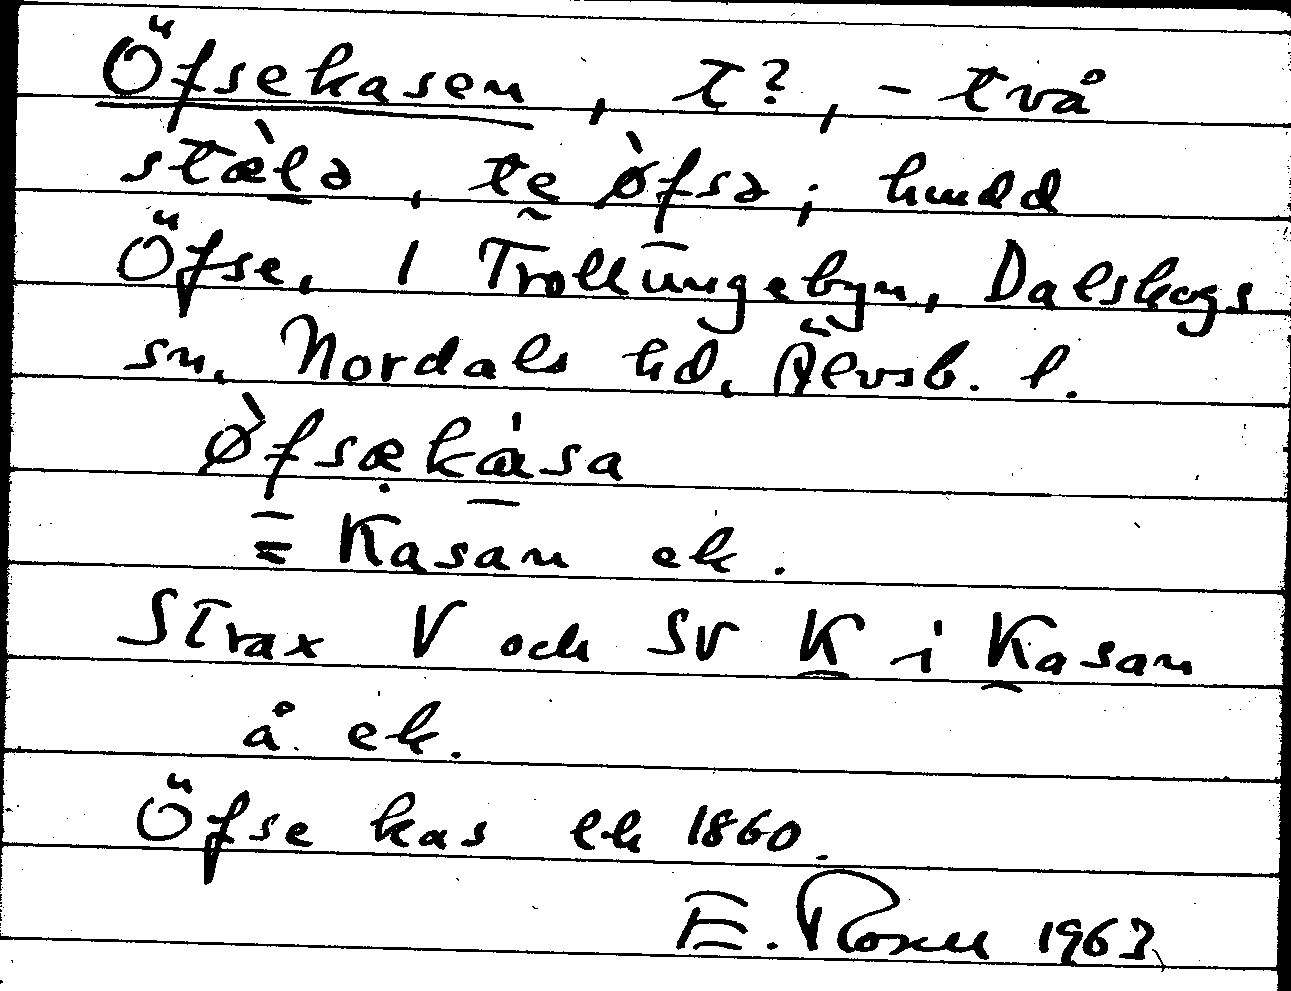 Öfsekasen, t?, - två
stæ̀lə, te ø̀fsə; hmdd
Öfse, 1 Trollungebyn, Dalskogs
sn, Nordals hd, Älvsb. l.
ø̀fsækása
= Kasan ek.
Strax V och SV K i Kasan
å ek.
Öfse kas lk 1860.
E. Rosell 1963